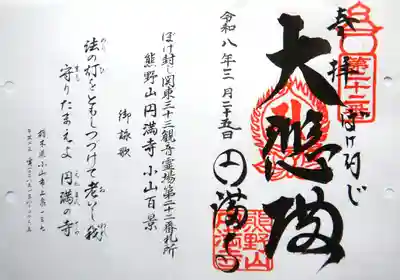 奉拝
ぼけ封じ
第二十二番
大悲殿
円満寺
熊野山
円満寺
令和八年三月二十五日
ぼけ封じ関東三十三観音霊場第二十二番札所
熊野山円満寺 小山百景
御詠歌
法の灯をともしつづけて老いし我
守りたまえよ 円満の寺